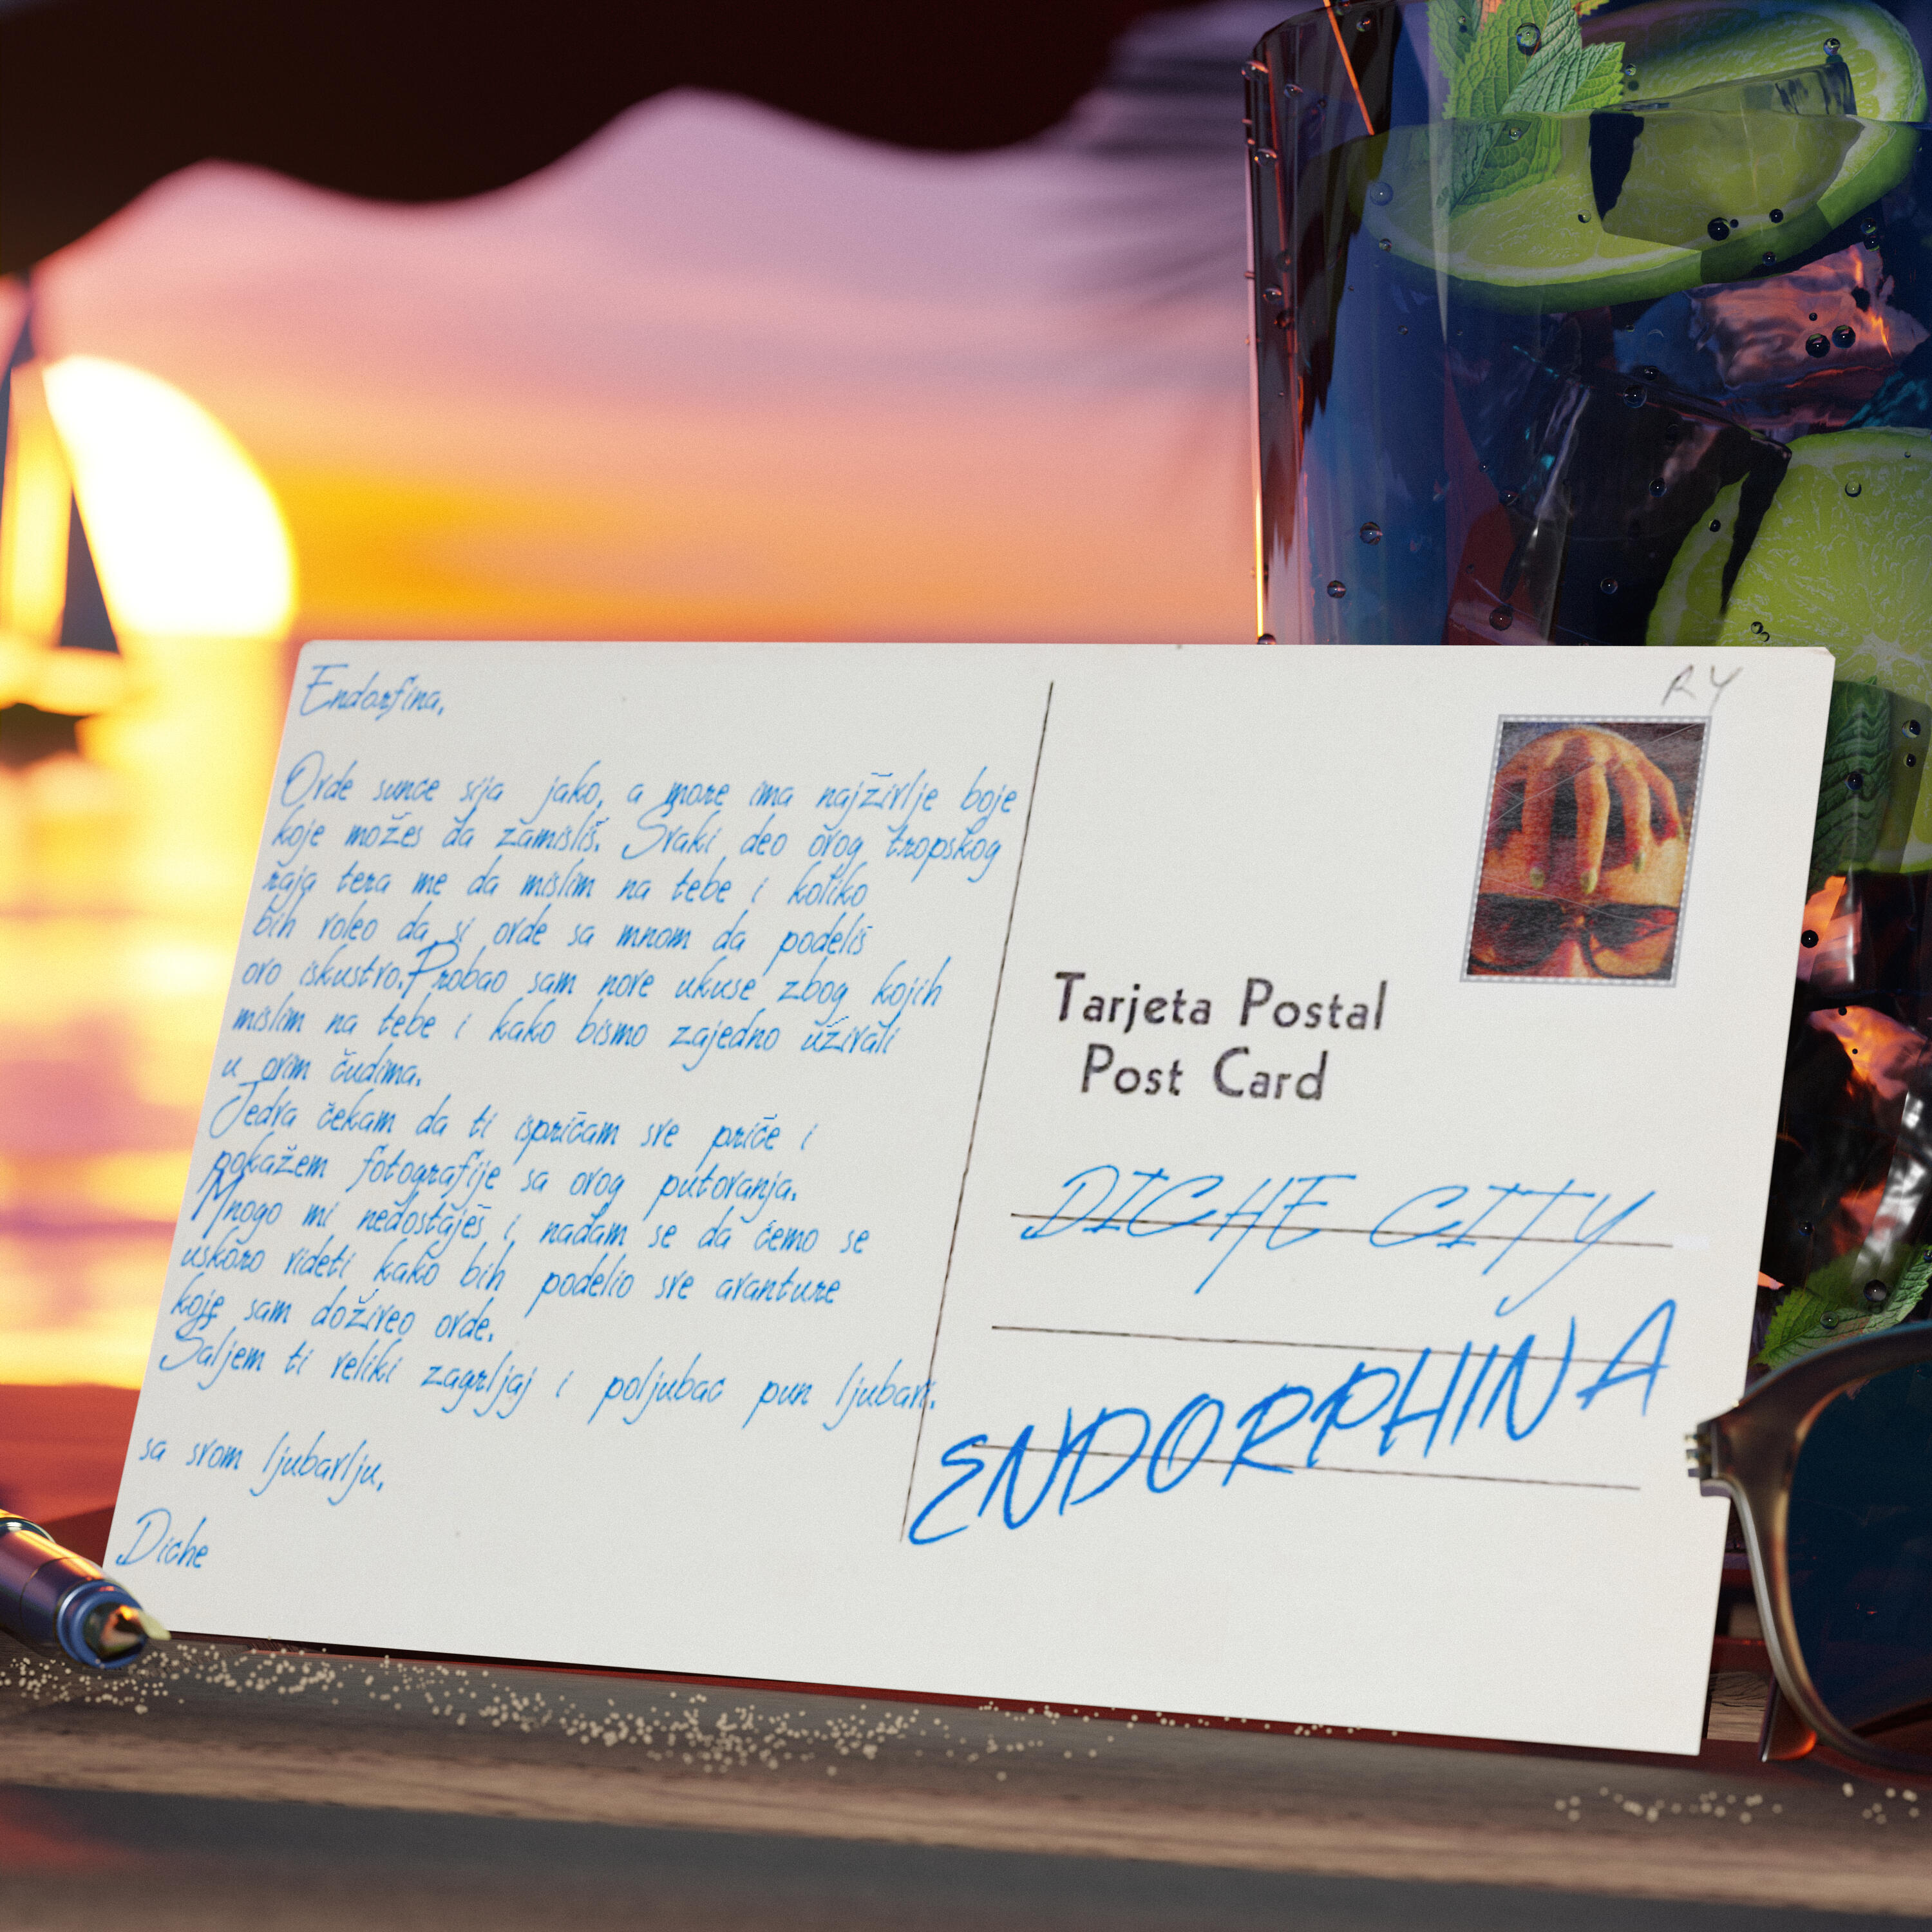 Endorfina,
Ovde sunce sija jako, a more ima najživlje boje
koje možeš da zamisliš. Svaki deo ovog tropskog
raja tera me da mislim na tebe i koliko
bih voleo da si ovde sa mnom da podeliš
ovo iskustvo. Probao sam nove ukuse zbog kojih
mislim na tebe i kako bismo zajedno uživali
u ovim čudima.
Jedva čekam da ti ispričam sve priče i
pokažem fotografije sa ovog putovanja.
Mnogo mi nedostaješ i nadam se da ćemo se
uskoro videti kako bih podelio sve avanture
koje sam doživeo ovde.
Šaljem ti veliki zagrljaj i poljubac pun ljubavi.
sa svom ljubavlju,
Diche
RY
Tarjeta Postal
Post Card
DICHE CITY
ENDORPHINA